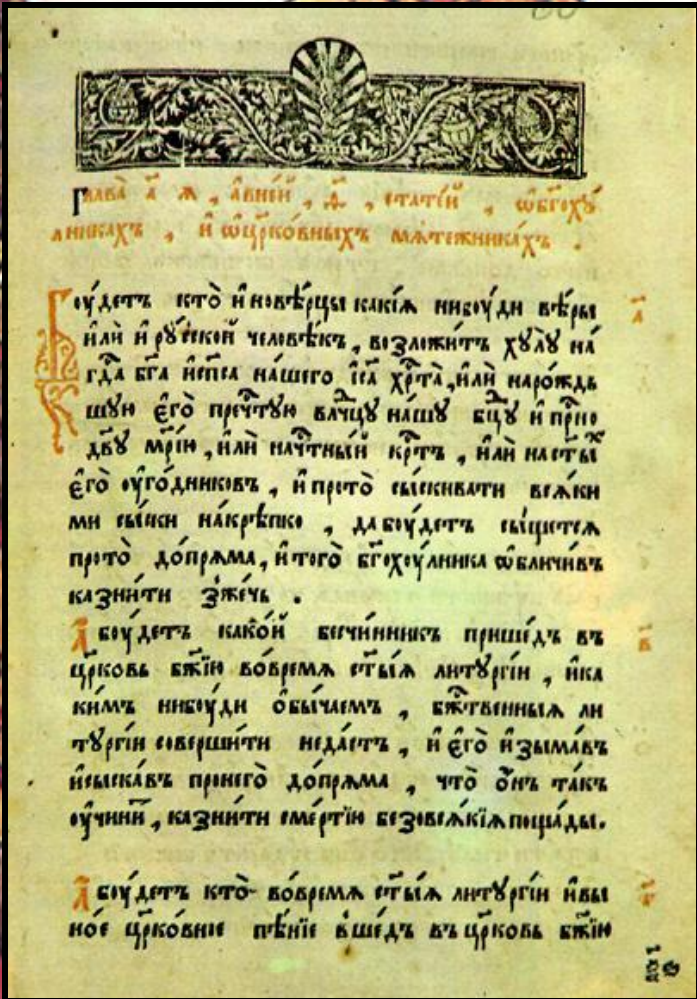 Глава̀ а҃ я , авне́й , ѳ҃ , стате́й , ѡ҆бг҃оху́
лникахъ , и҆ ѡ҆цр҃ко́вныхъ мѧте́жника́хъ .
Боу́детъ кто̀ и҆новѣ́рцы каки́ѧ нибоу́ди вѣ́ры
и҆лѝ и҆ ру́сской человѣ́къ , возложи́тъ хулу̀ на́
гд҃а бг҃а и҆сп҃са на́шего і҆с҃а хр҃та̀ , и҆лѝ наро́ждь
шую є҆го̀ преч҃тую влч҃цу на́шу бц҃у и҆ при҃сно
дв҃у мр҃і́ю , и҆лѝ нач҃тны́й кр҃тъ , и҆лѝ наст҃ы́х
є҆го̀ оу҆го́дниковъ , и҆ прото̀ сы́скивати всѧ́ки
ми сы́ски на́крѣпко , да боу́детъ сы́щетсѧ
прото̀ до́прѧма , и҆того̀ бг҃охоу́лника ѡ҆бличи́въ
казни́ти зже́чь .
А҆ боу́детъ како́й бесчи́нникъ прише́дъ въ
цр҃ковь бж҃ію во́времѧ ст҃ы́ѧ литу́ргіи , и҆ка
ки́мъ нибоу́ди о҆бы́чаемъ , бж҃твенныѧ ли
ту́ргіи соверши́ти неда́стъ , и҆ є҆го̀ и҆зыма́въ
и҆сыска́въ пронего̀ до́прѧма , что̀ о҆́нъ та́къ
оу҆чини́т , казни́ти сме́ртію безовсѧ́кіѧ поща́ды .
А҆ боу́детъ кто̀ во́времѧ ст҃ы́ѧ литу́ргіи и҆вы
но́е цр҃ко́вное пѣ́ніе вше́дъ въ цр҃ковь бж҃ію
а҃
в҃